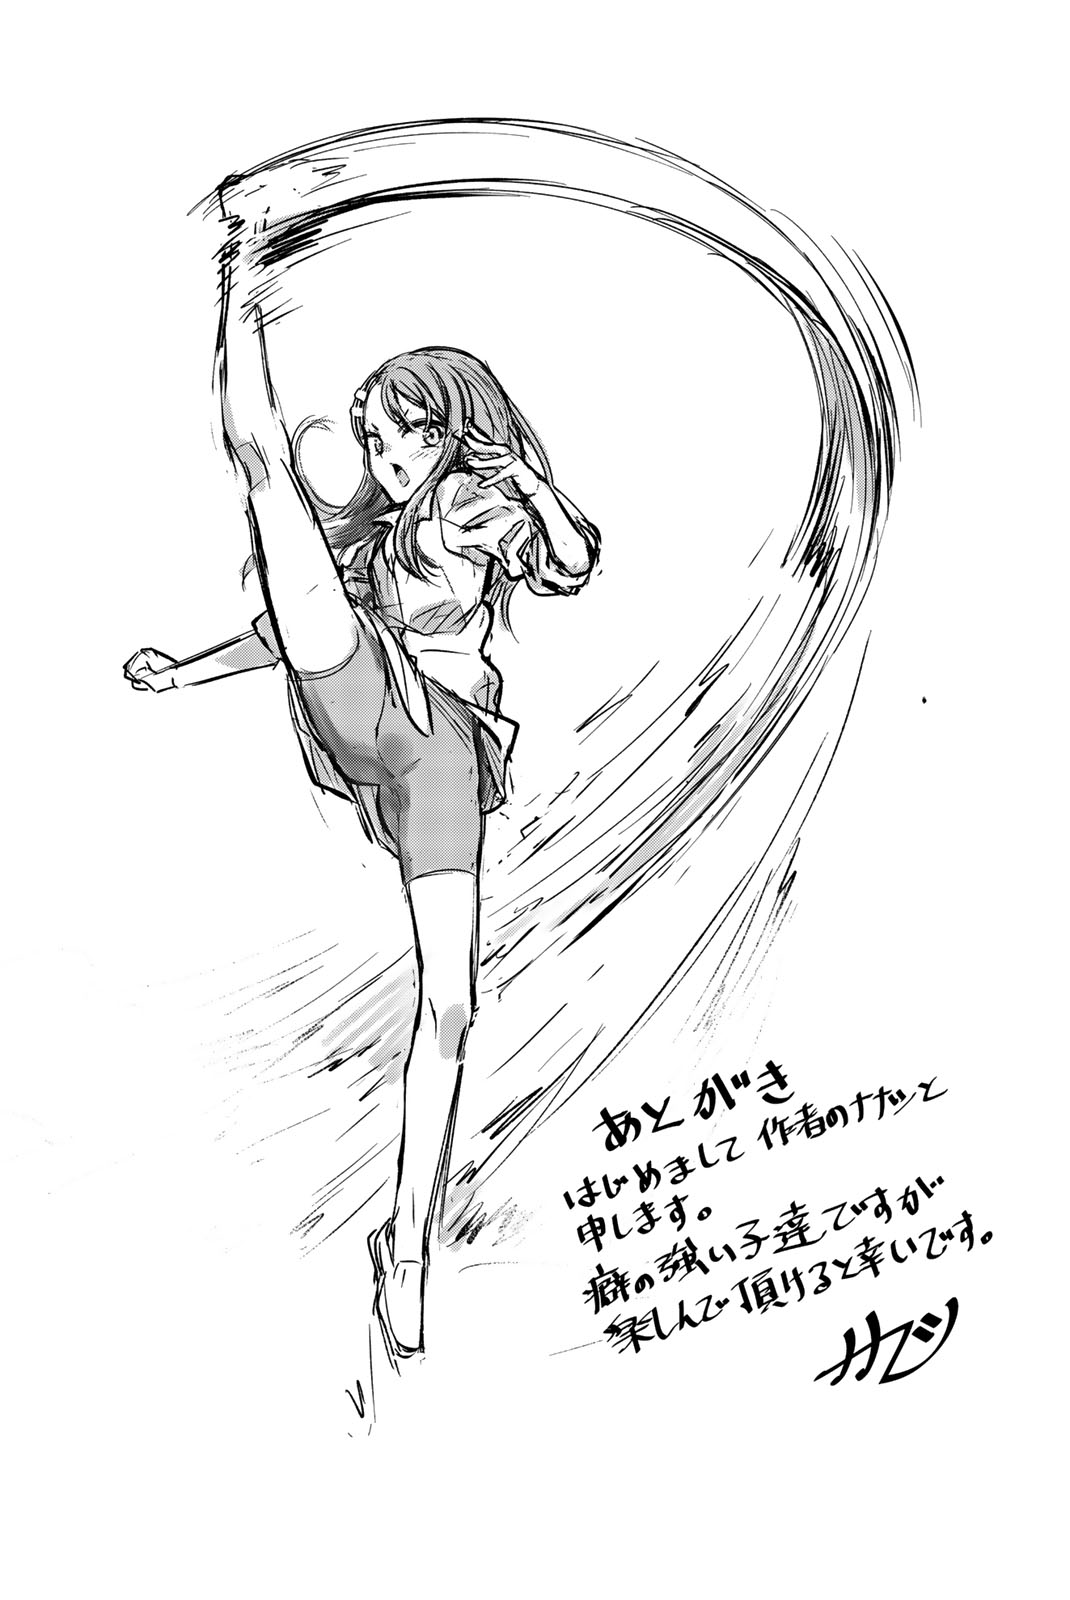 あとがき
はじめまして 作者のナナシと
申します。
癖の強い子達ですが
楽しんで頂けると幸いです。